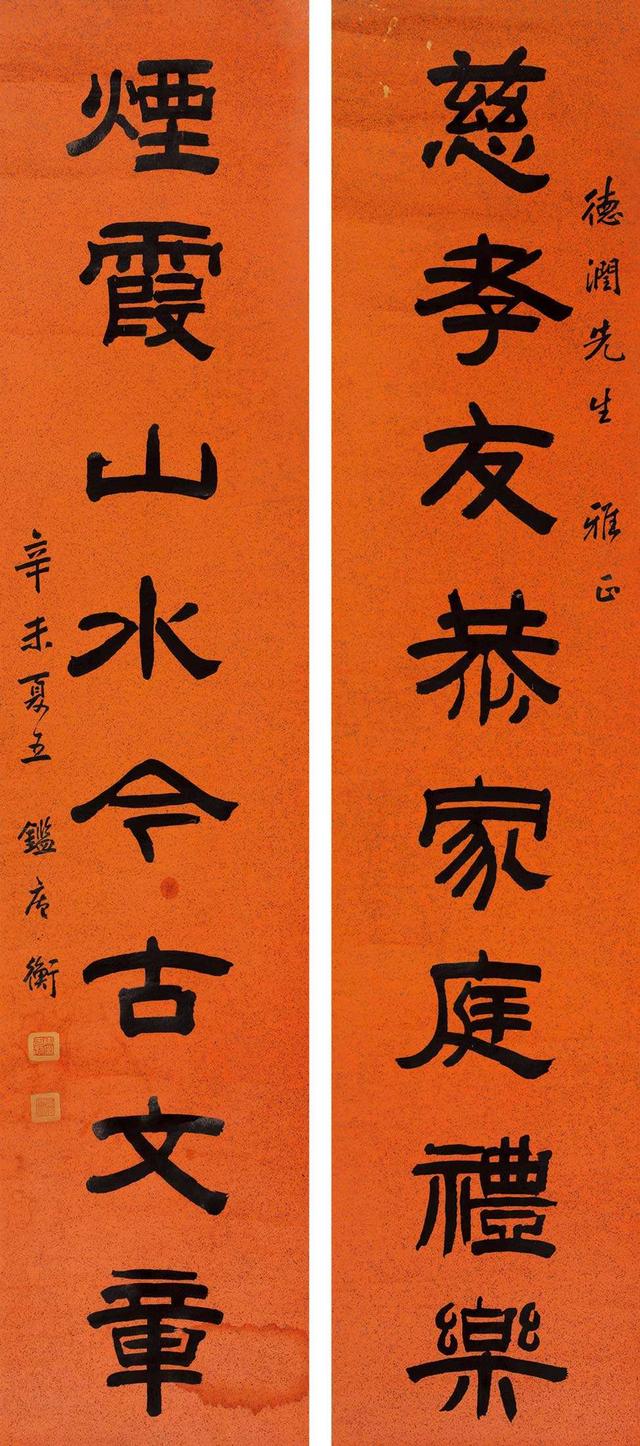 德潤先生 雅正
慈孝友恭家庭禮樂
煙霞山水今古文章
辛未夏五 鑑唐衡